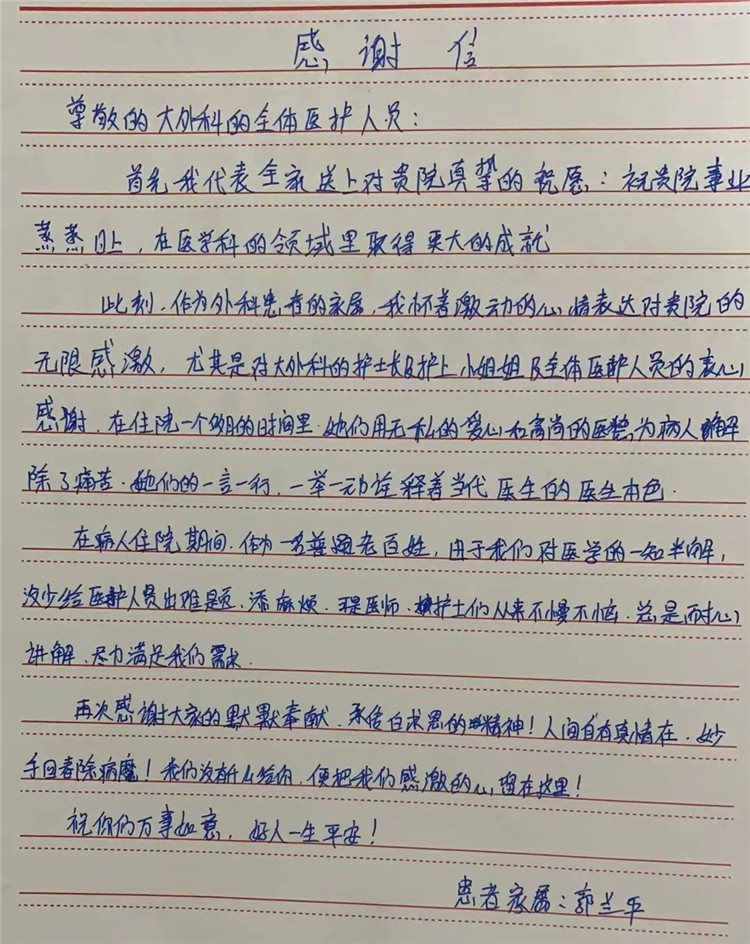 感谢信
尊敬的大外科的全体医护人员：
首先我代表全家送上对贵院真挚的祝愿：祝贵院事业
蒸蒸日上，在医学科的领域里取得更大的成就
此刻，作为外科患者的家属，我怀着激动的心情表达对贵院的
无限感激，尤其是对大外科的护士长及护士小姐姐及全体医护人员的衷心
感谢，在住院一个多月的时间里，她们用无私的爱心和高尚的医德，为病人解
除了痛苦，她们的一言一行，一举一动诠释着当代医生的医生本色。
在病人住院期间，作为一名普通老百姓，由于我们对医学的一知半解，
没少给医护人员出难题，添麻烦，医师、护士们从来不慢不怠，总是耐心
讲解，尽力满足我们需求。
再次感谢大家的默默奉献，承传白求恩的精神！人间自有真情在，妙
手回春除病魔！我们没有什么给你，便把我们感激的心留在这里！
祝你们万事如意，好人一生平安！
患者家属：郭兰平